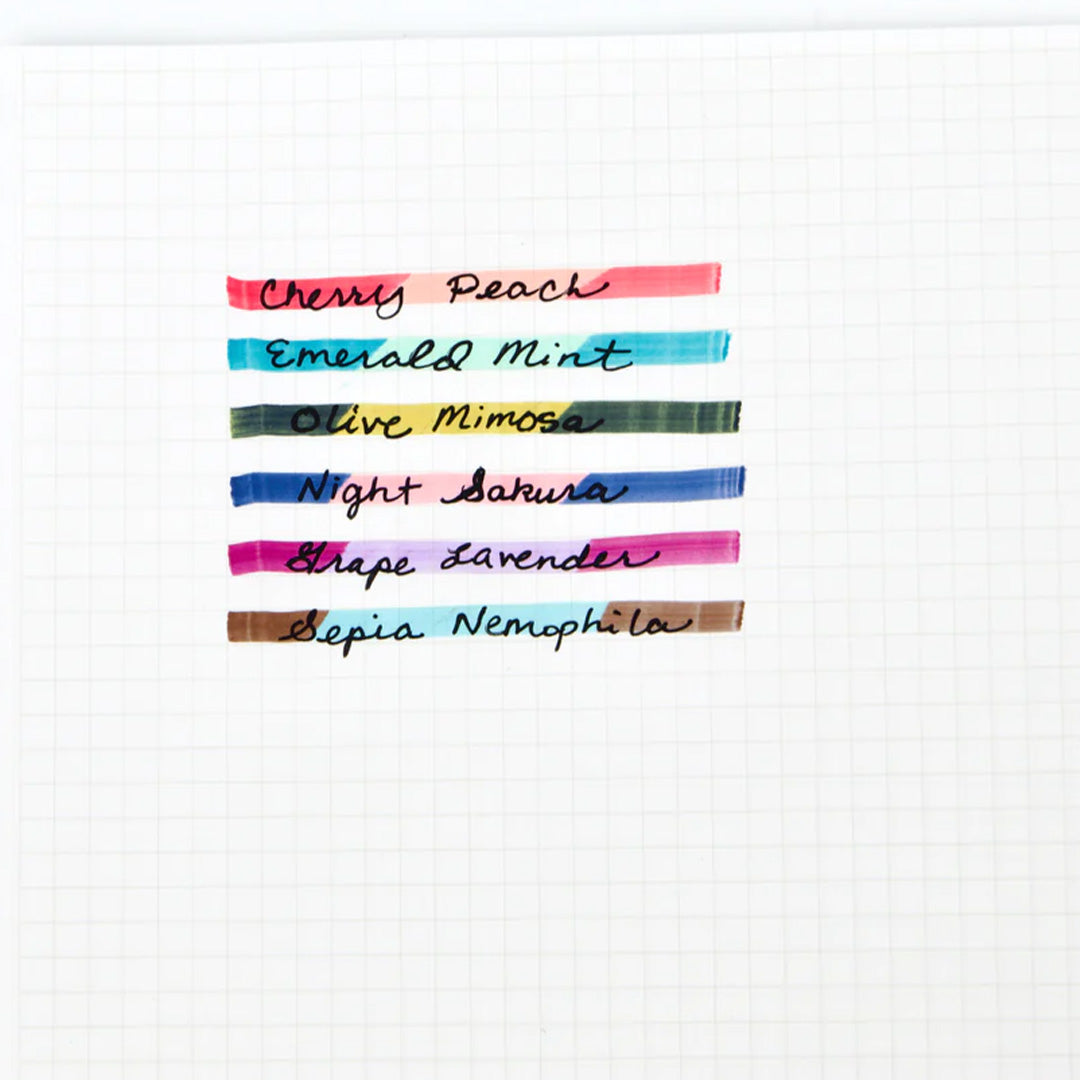 Cherry Peach
Emerald Mint
Olive Mimosa
Night Sakura
Grape Lavender
Sepia Nemophila